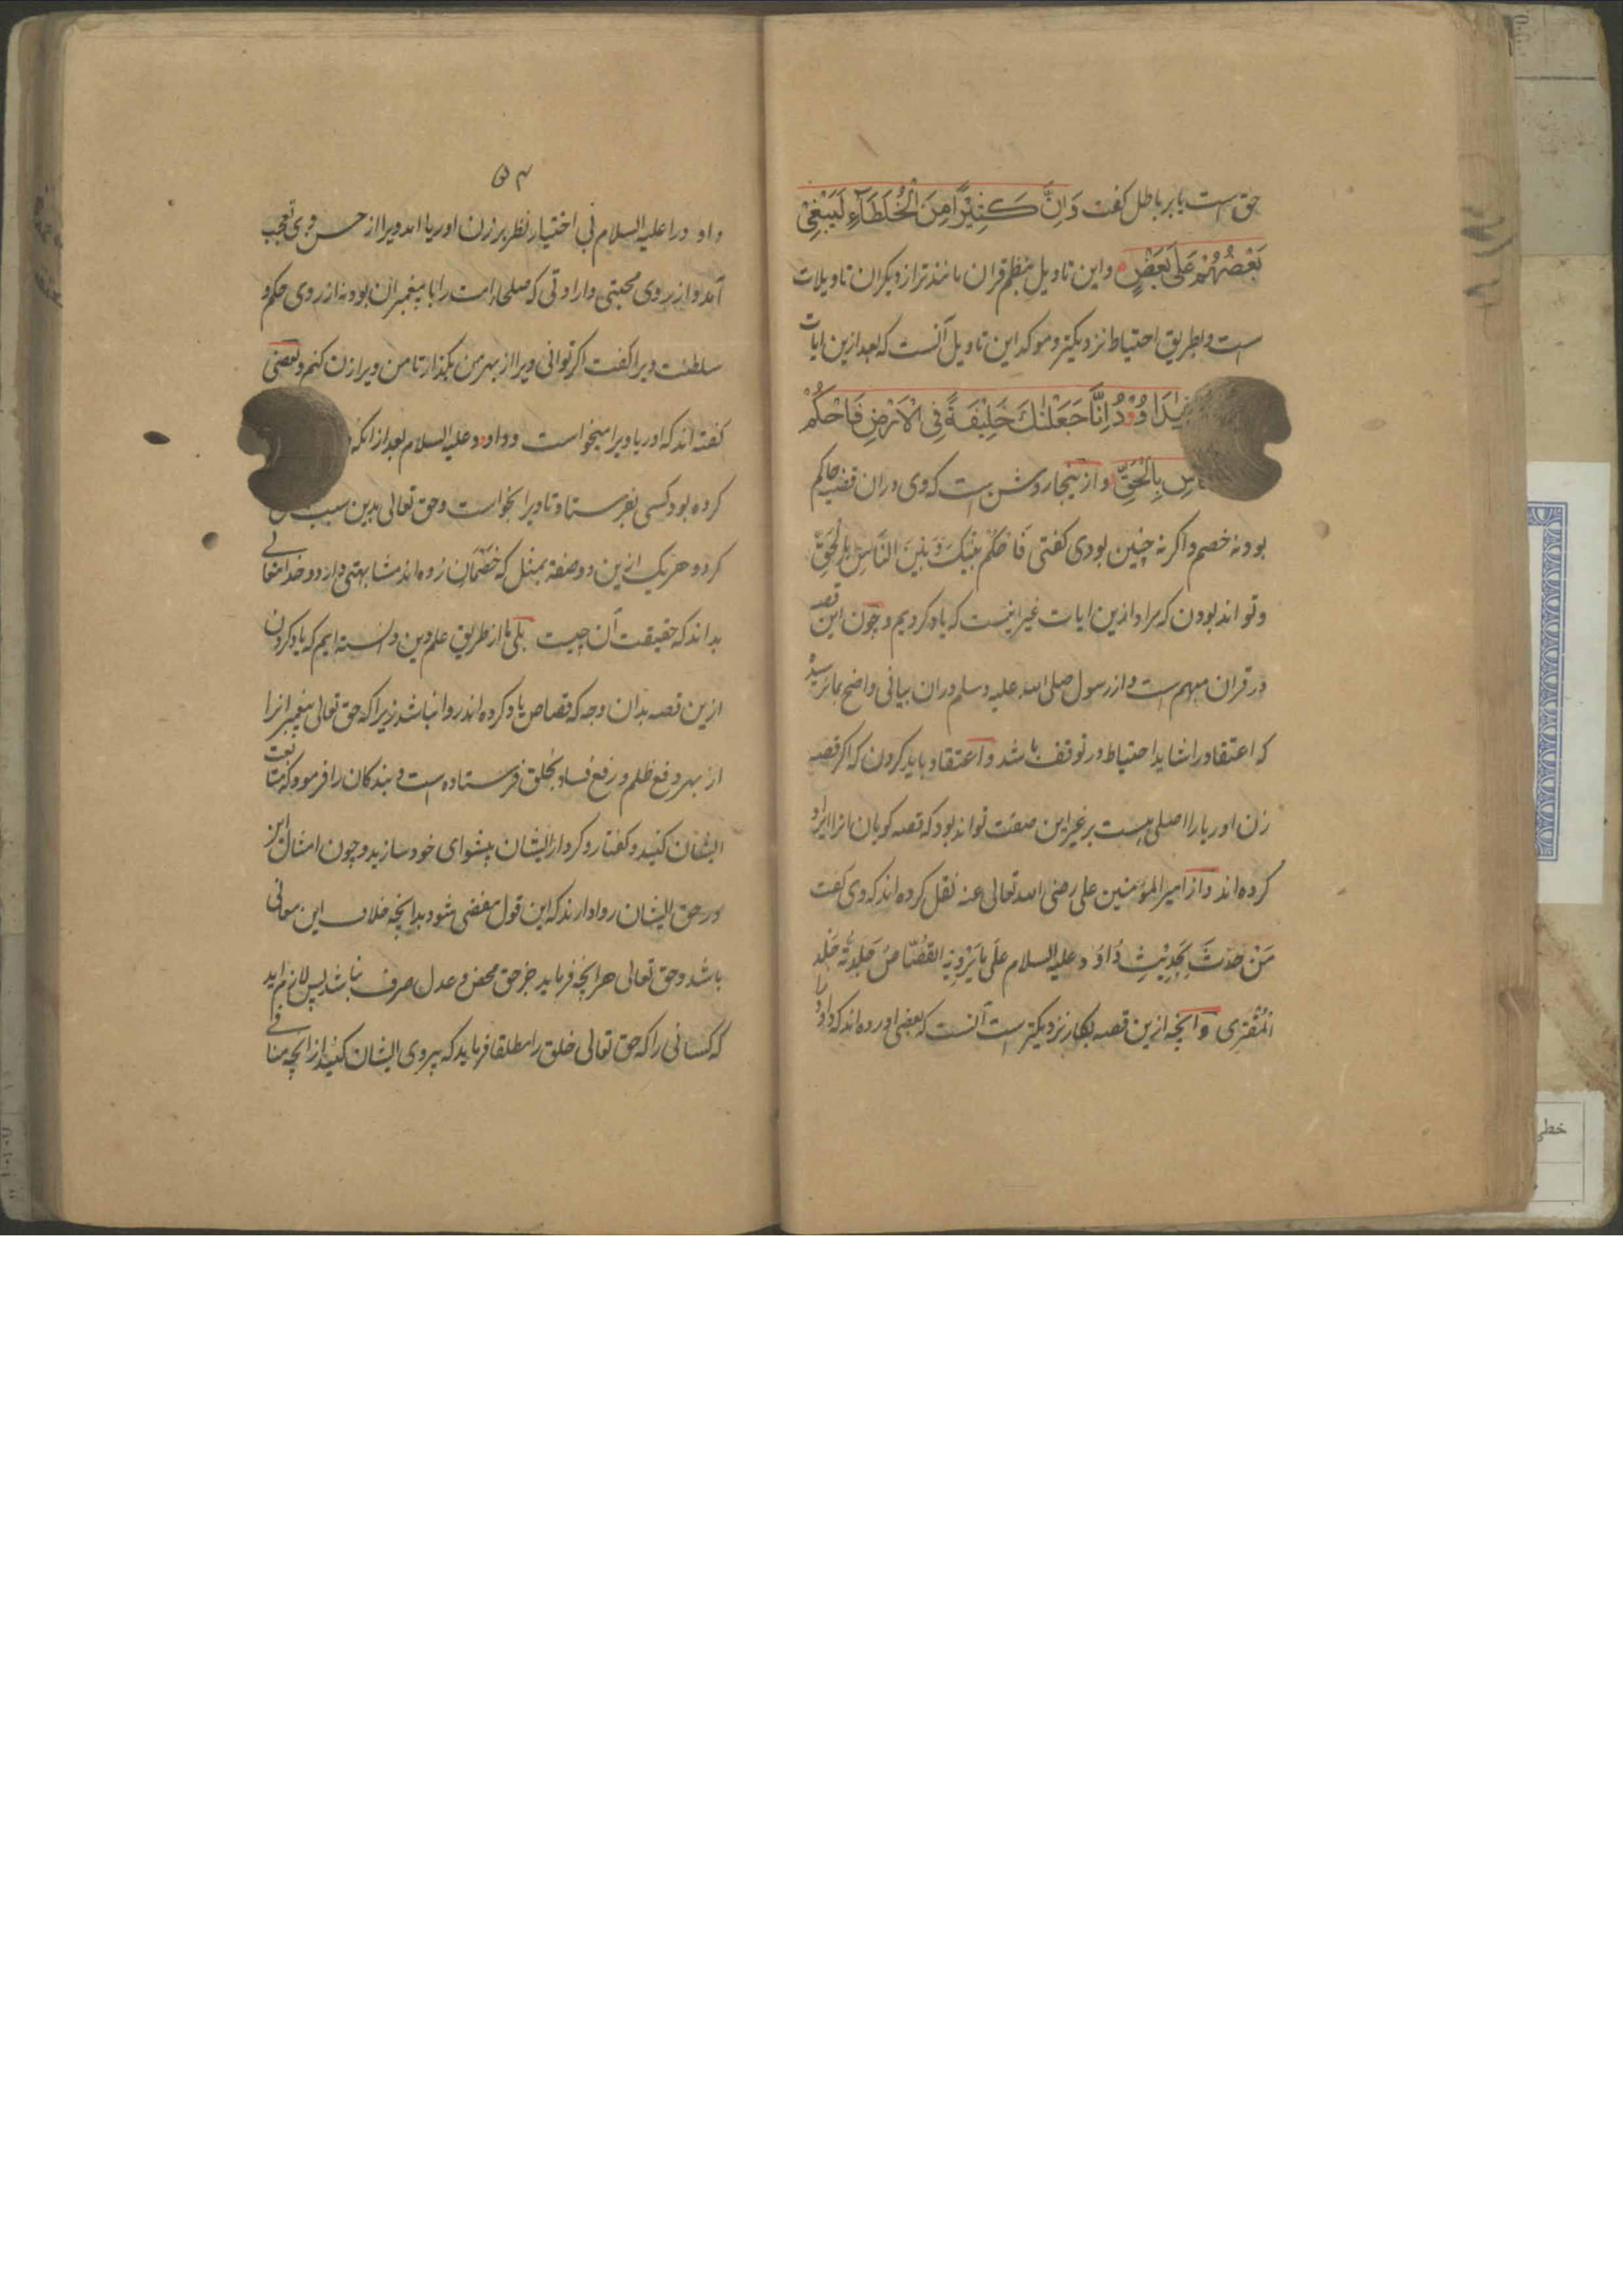 حق است یا بر باطل کفت وَاِنَّ کَثِیْرًا مِنَ الْخُلَطَآءِ لَیَبْغِیْ
بَعْضُهُمْ عَلٰی بَعْضٍ و این تاویل بنظم قران مانندتر از دیکران تاویلات
است و بطریق احتیاط نزدیکتر و موکد این تاویل آنست که بعد ازین ایات
یٰدَاوٗدُ اِنَّا جَعَلْنٰكَ خَلِیْفَةً فِی الْاَرْضِ فَاحْکُمْ
بِالْحَقِّ و از ینجا روشن است که وی دران قضیه حاکم
بود نه خصم و اکر نه چنین بودی کفتی فَاحْکُمْ بَیْنَكَ وَ بَیْنَ النَّاسِ بِالْحَقِّ
و تواند بودن که مراد ازین ایات غیر اینست که یاد کردیم و چون این قصه
در قران مبهم است و از رسول صلی الله علیه وسلم دران بیانی واضح بما نرسید
که اعتقاد را شاید احتیاط در توقف باشد و اعتقاد باید کردن که اکر قصه
زن اوریا را اصلی هست بر غیر این صفت تواند بود که قصه کویان انرا ایراد
کرده اند و از امیر المؤمنین علی رضی الله تعالی عنه نقل کرده اند که وی کفت
مَنْ حَدَّثَ بِحَدِیْثِ دَاوٗد علیه السلام عَلٰی مَا یَرْوِیْهِ القُصَّاصُ جَلَدْتُهٗ جَلْدَ
الْمُفْتَرِی و آنچه ازین قصه بکار نزدیکتر است آنست که بعضی اورده اند که داود را
۵۴
داود را علیه السلام بی اختیار نظر بر زن اوریا امد ویرا از حسن وی تعجب
آمد و از روی محبتی و ارادتی که صلحاء امت را با پیغمبران بود نه از روی حکم و
سلطنت ویرا کفت اکر توانی ویرا از بهر من بکذار تا من ویرا زن کنم و بعضی
کفته اند که اوریا ویرا میخواست و داود علیه السلام بعد ازانکه
کرده بود کسی بفرستاد تا ویرا بخواست و حق تعالی بدین سبب
کرد و هر یک ازین دو صفة بمثل که خَصْمَان زده اند مشابهتی دارد و خدایتعالی
بداند که حقیقت آن چیست بلی ما از طریق علم دین دانسته ایم که یاد کردن
ازین قصه بدان وجه که قصاص یاد کرده اند روا نباشد زیرا که حق تعالی پیغمبرانرا
از بهر دفع ظلم و رفع فساد بخلق فرستاده است و بندکان را فرمود که متابعت
ایشان کنید و کفتار و کردار ایشان پیشوای خود سازید و چون امثال این
در حق ایشان روا دارند که این قول مفضی شود بدانچه خلاف این معانی
باشد و حق تعالی هر آنچه فرماید جز حق محض و عدل صرف نباشد پس لازم اید
که کسانی را که حق تعالی خلق را مطلقا فرماید که پیروی ایشان کنید از انچه منافی
خطی